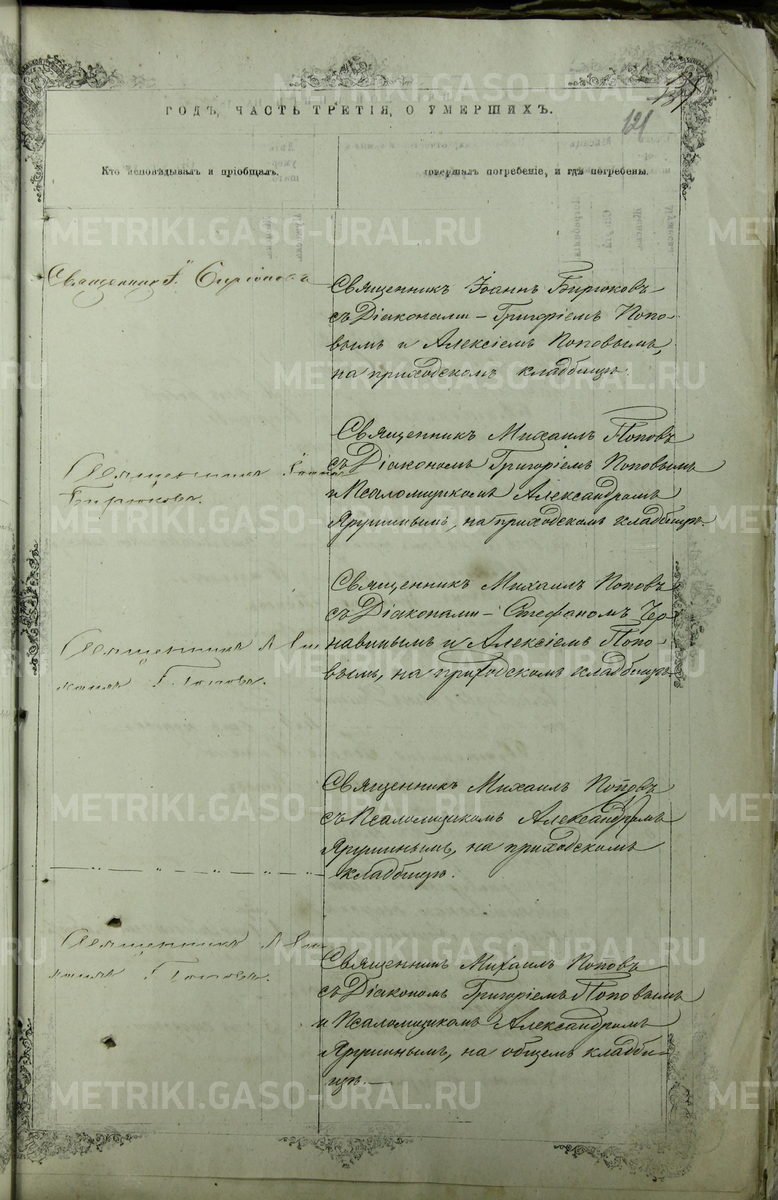 ГОДЪ, ЧАСТЬ ТРЕТІЯ, О УМЕРШИХЪ.
121
Кто исповѣдывалъ и пріобщалъ.
совершалъ погребеніе, и гдѣ погребены.
Священникъ І. Бирюковъ
Священникъ Іоаннъ Бирюковъ
съ Діаконами – Григоріемъ Попо-
вымъ и Алексіемъ Поповымъ,
на приходскомъ кладбищѣ.
Священникъ Іоаннъ
Бирюковъ.
Священникъ Михаилъ Поповъ
съ Діакономъ Григоріемъ Поповымъ
и Псаломщикомъ Александромъ
Ярушинымъ, на приходскомъ кладбищѣ.
Священникъ
Поповъ.
Священникъ Михаилъ Поповъ
съ Діаконами – Стефаномъ Чер-
навинымъ и Алексіемъ Попо-
вымъ, на приходскомъ кладбищѣ
— " — " — " — " —
Священникъ Михаилъ Поповъ
съ Псаломщикомъ Александромъ
Ярушинымъ, на приходскомъ
кладбищѣ.
Священникъ
Поповъ.
Священникъ Михаилъ Поповъ
съ Діакономъ Григоріемъ Поповымъ
и Псаломщикомъ Александромъ
Ярушинымъ, на общемъ кладби-
щѣ.
METRIKI.GASO-URAL.RU